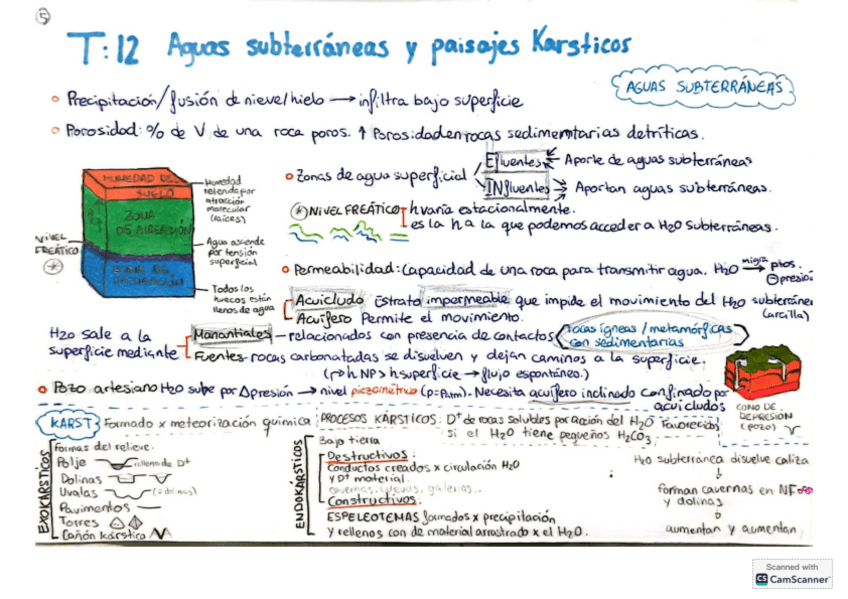 5
T:12 Aguas subterráneas y paisajes Karsticos
AGUAS SUBTERRÁNEAS
Precipitación/fusión de nieve/hielo → infiltra bajo superficie
Porosidad: % de V de una roca poros. ↑ Porosidad en rocas sedimentarias detríticas.
HUMEDAD DEL SUELO
Humedad retenida por atracción molecular (raíces)
ZONA DE AIREACIÓN
NIVEL FREÁTICO
Agua asciende por tensión superficial
Todos los huecos están llenos de agua
Zonas de agua superficial
Efluentes Aporte de aguas subterráneas
INfluentes Aportan aguas subterráneas.
NIVEL FREÁTICO h varía estacionalmente.
es la h a la que podemos acceder a H2O subterráneas.
Permeabilidad: Capacidad de una roca para transmitir agua. H2O migra → ptos. ⊖presió
Acuicludo Estrato impermeable que impide el movimiento del H2O subterráne
(arcilla)
Acuífero Permite el movimiento.
H2O sale a la superficie mediante
Manantiales – relacionados con presencia de contactos (rocas ígneas/metamórficas con sedimentarias
Fuentes - rocas carbonatadas se disuelven y dejan caminos a la superficie.
h NP > h superficie → flujo espontáneo.)
Pozo artesiano H2O sube por Δpresión → nivel piezométrico (p=Patm). Necesita acuífero inclinado confinado por acuicludos
CONO DE DEPRESIÓN (POZO)
KARST Formado x meteorización química
PROCESOS KÁRSTICOS: Dº de rocas solubles por acción del H2O Favorecido si el H2O tiene pequeños H2CO3.
EXOKÁRSTICOS
Formas del relieve:
Polje relleno de Dº
Dolinas
Uvalas (= dolinas)
Pavimentos
Torres
Cañón kárstico
ENDOKÁRSTICOS
Bajo tierra
Destructivos:
Conductos creados x circulación H2O
y Dº material.
cavernas, cuevas, galerías...
Constructivos:
ESPELEOTEMAS formados x precipitación
y rellenos con de material arrastrado x el H2O.
H2O subterránea disuelve caliza
↓
forman cavernas en NF
y dolinas
↓
aumentan y aumentan
Scanned with
CS CamScanner